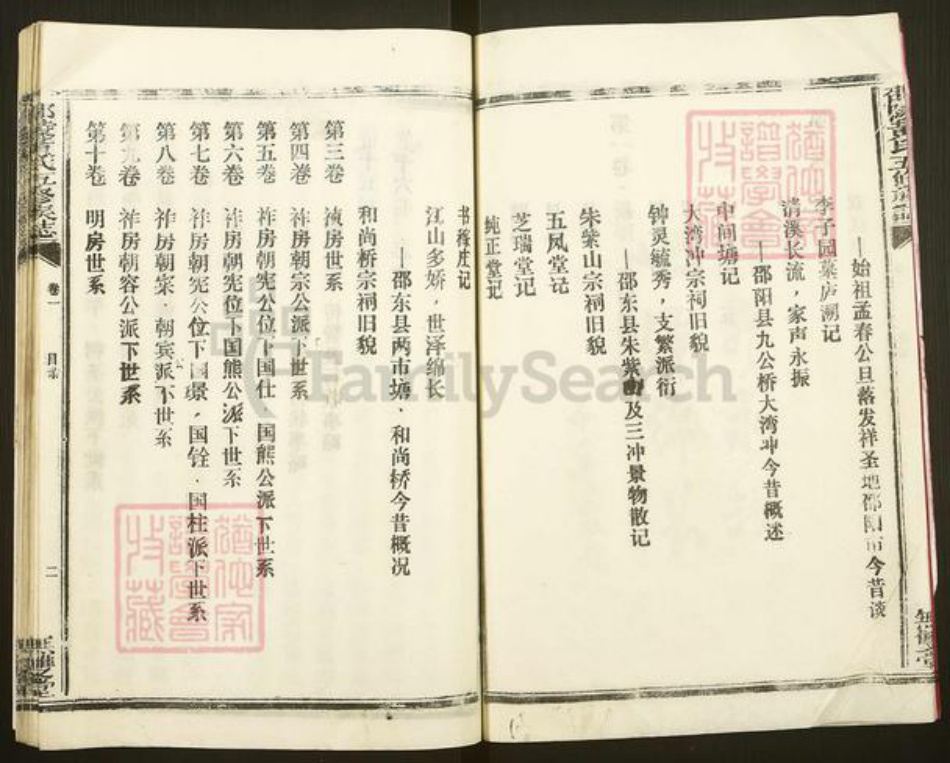 ——始祖孟春公旦落发祥圣地邵阳市今昔谈
李子园墓庐溯记
清溪长流，家声永振
——邵阳县九公桥大湾冲今昔概述
中间塘记
大湾冲宗祠旧貌
钟灵毓秀，支繁派衍
——邵东县朱紫山及三冲景物散记
朱紫山宗祠旧貌
五凤堂记
芝瑞堂记
纯正堂记
书稼庄记
江山多娇，世泽绵长
——邵东县两市塘、和尚桥今昔概况
和尚桥宗祠旧貌
第三卷 祯房世系
第四卷 祚房朝宗公派下世系
第五卷 祚房朝宪公位下国仕、国熊公派下世系
第六卷 祚房朝宪位下国熊公派下世系
第七卷 祚房朝宪公位下国景、国铨、国柱派下世系
第八卷 祚房朝寀、朝宾派下世系
第九卷 祚房朝容公派下世系
第十卷 明房世系
卷一
目录
二
FamilySearch